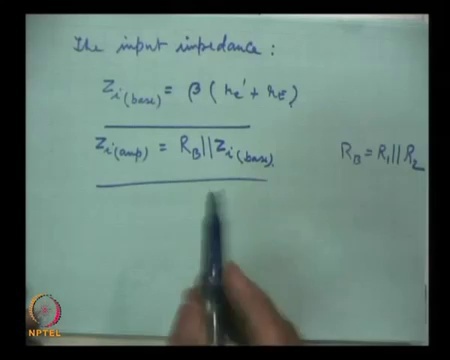 The input impedance:
Zi(base) = β(re' + rE)
Zi(amp) = RB||Zi(base).
RB = R1||R2
NPTEL